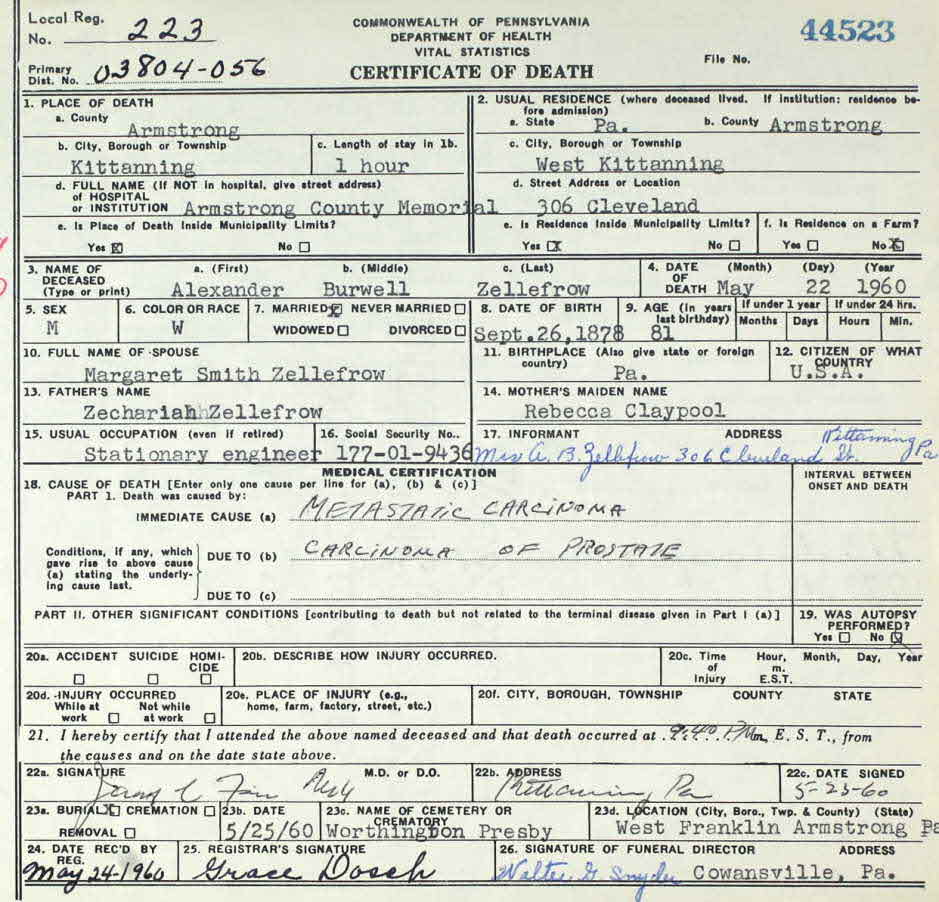 Local Reg. No. 223
COMMONWEALTH OF PENNSYLVANIA
DEPARTMENT OF HEALTH
VITAL STATISTICS
CERTIFICATE OF DEATH
File No. 44523
Primary Dist. No. 03804-056
1. PLACE OF DEATH
a. County Armstrong
b. City, Borough or Township Kittanning
c. Length of stay in 1b. 1 hour
d. FULL NAME (If NOT in hospital, give street address) of HOSPITAL or INSTITUTION Armstrong County Memorial
e. Is Place of Death Inside Municipality Limits?
Yes ☒ No ☐
2. USUAL RESIDENCE (where deceased lived. If institution: residence before admission)
a. State Pa. b. County Armstrong
c. City, Borough or Township West Kittanning
d. Street Address or Location 306 Cleveland
e. Is Residence Inside Municipality Limits? Yes ☒ No ☐
f. Is Residence on a Farm? Yes ☐ No ☒
3. NAME OF DECEASED (Type or print) a. (First) Alexander b. (Middle) Burwell c. (Last) Zellefrow
4. DATE OF DEATH (Month) May (Day) 22 (Year 1960
5. SEX M
6. COLOR OR RACE W
7. MARRIED ☒ NEVER MARRIED ☐
WIDOWED ☐ DIVORCED ☐
8. DATE OF BIRTH Sept.26,1878
9. AGE (In years last birthday) 81
If under 1 year Months Days
If under 24 hrs. Hours Min.
10. FULL NAME OF SPOUSE Margaret Smith Zellefrow
11. BIRTHPLACE (Also give state or foreign country) Pa.
12. CITIZEN OF WHAT COUNTRY U.S.A.
13. FATHER'S NAME Zechariah Zellefrow
14. MOTHER'S MAIDEN NAME Rebecca Claypool
15. USUAL OCCUPATION (even if retired) Stationary engineer
16. Social Security No.. 177-01-9436
17. INFORMANT ADDRESS Mrs A. B. Zellefrow 306 Cleveland St. Kittanning Pa
MEDICAL CERTIFICATION
18. CAUSE OF DEATH [Enter only one cause per line for (a), (b) & (c)]
INTERVAL BETWEEN ONSET AND DEATH
PART 1. Death was caused by:
IMMEDIATE CAUSE (a) METASTATIC CARCINOMA
Conditions, if any, which gave rise to above cause (a) stating the underlying cause last.
DUE TO (b) CARCINOMA OF PROSTATE
DUE TO (c)
PART II. OTHER SIGNIFICANT CONDITIONS [contributing to death but not related to the terminal disease given in Part I (a)]
19. WAS AUTOPSY PERFORMED?
Yes ☐ No ☒
20a. ACCIDENT SUICIDE HOMICIDE
☐ ☐ ☐
20b. DESCRIBE HOW INJURY OCCURRED.
20c. Time of Injury Hour, Month, Day, Year
m. E.S.T.
20d. INJURY OCCURRED
While at work ☐ Not while at work ☐
20e. PLACE OF INJURY (e.g., home, farm, factory, street, etc.)
20f. CITY, BOROUGH, TOWNSHIP COUNTY STATE
21. I hereby certify that I attended the above named deceased and that death occurred at 9:40 P.M m, E. S. T., from
the causes and on the date state above.
22a. SIGNATURE M.D. or D.O.
22b. ADDRESS Kittanning, Pa
22c. DATE SIGNED 5-23-60
23a. BURIAL ☒ CREMATION ☐
REMOVAL ☐
23b. DATE 5/25/60
23c. NAME OF CEMETERY OR CREMATORY Worthington Presby
23d. LOCATION (City, Boro., Twp. & County) (State) West Franklin Armstrong Pa
24. DATE REC'D BY REG. May 24-1960
25. REGISTRAR'S SIGNATURE Grace Dosch
26. SIGNATURE OF FUNERAL DIRECTOR ADDRESS Walter G. Snyder Cowansville, Pa.